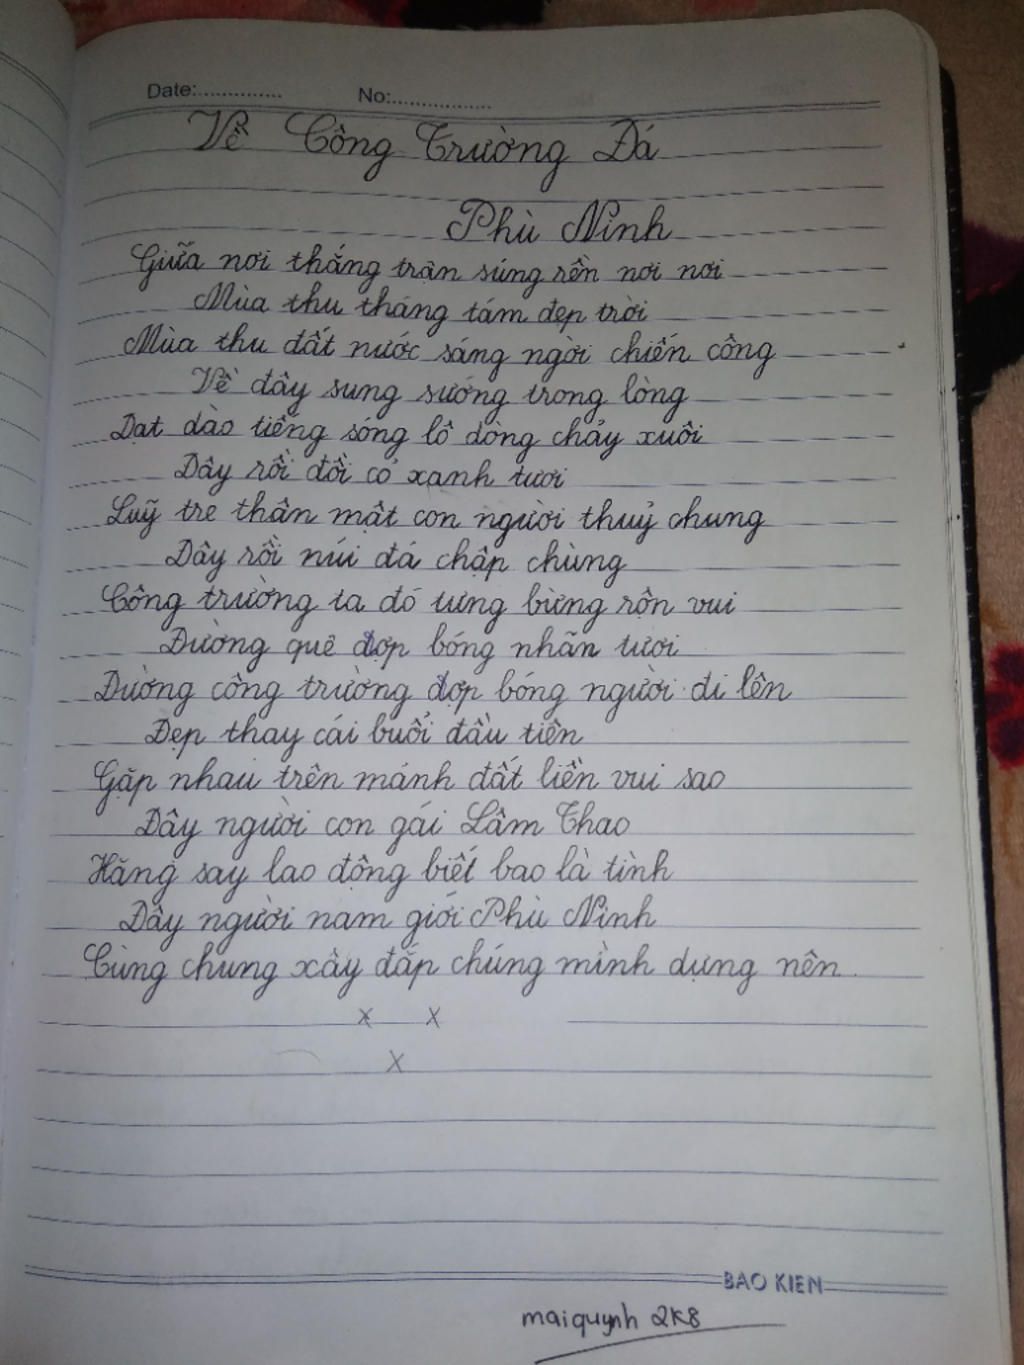 Date:............... No:.................
Về Công Trường Đá
Phù Ninh
Giữa nơi thắng trận súng rền nơi nơi
Mùa thu tháng tám đẹp trời
Mùa thu đất nước sáng ngời chiến công
Về đây sung sướng trong lòng
Dạt dào tiếng sóng lô dòng chảy xuôi
Đây rồi đồi cỏ xanh tươi
Luỹ tre thân mật con người thuỷ chung
Đây rồi núi đá chập chùng
Công trường ta đó tưng bừng rộn vui
Đường quê đợp bóng nhãn tươi
Đường công trường đợp bóng người đi lên
Đẹp thay cái buổi đầu tiên
Gặp nhau trên mảnh đất liền vui sao
Đây người con gái Lâm Thao
Hăng say lao động biết bao là tình
Đây người nam giới Phù Ninh
Cùng chung xây đắp chúng mình dựng nên
x x
x
BAO KIEN
maiquynh 2K8